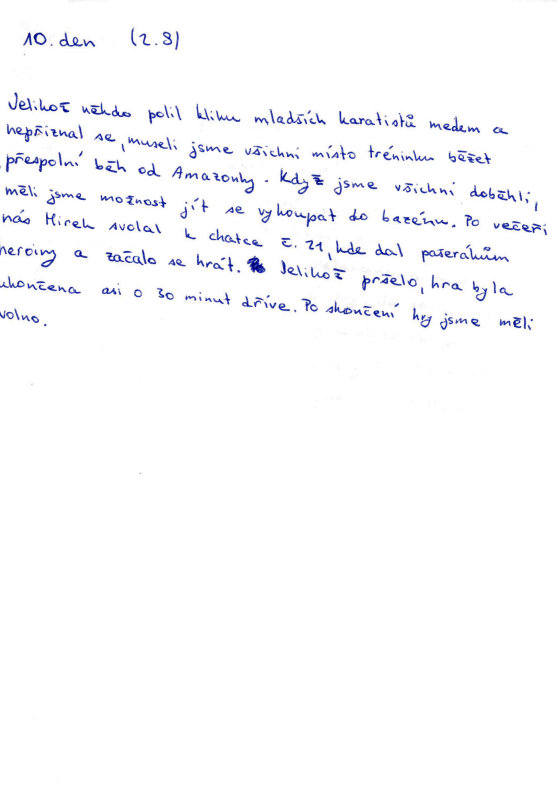 10. den (2.8)
Jelikož někdo polil kliku mladších karatistů medem a
nepřiznal se, museli jsme všichni místo tréninku běžet
přespolní běh od Amazonky. Když jsme všichni doběhli,
měli jsme možnost jít se vykoupat do bazénu. Po večeři
nás Mirek svolal k chatce č. 21, kde dal pašerákům
heroiny a začalo se hrát. Jelikož pršelo, hra byla
ukončena asi o 30 minut dříve. Po skončení hry jsme měli
volno.